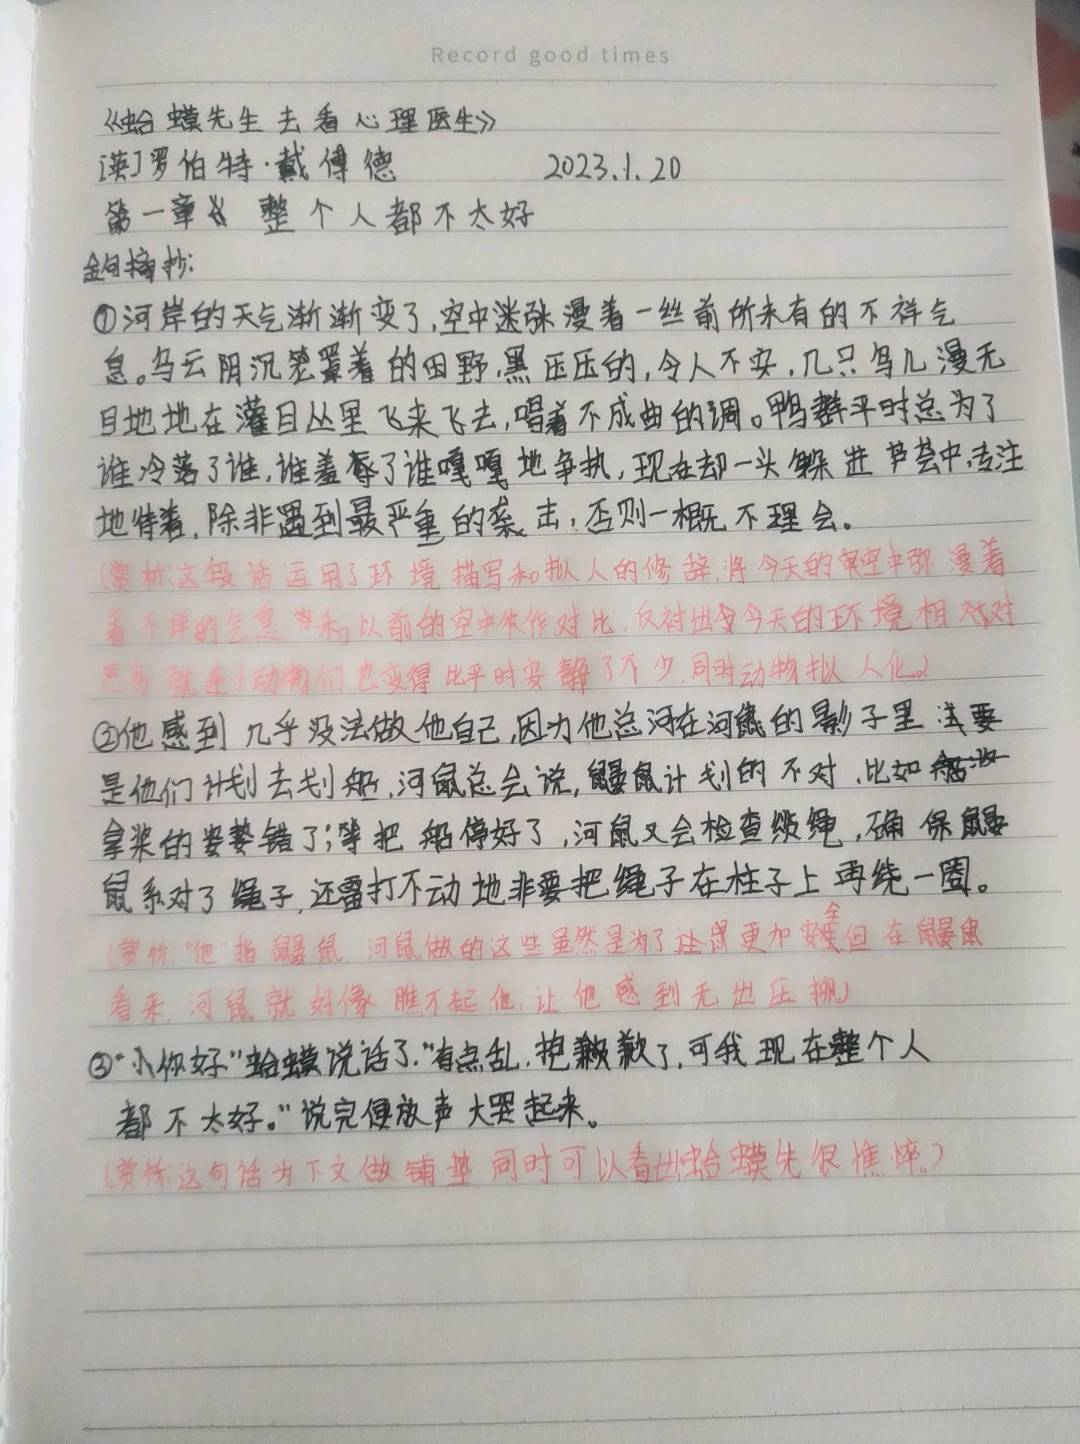 Record good times
《蛤蟆先生去看心理医生》
[英]罗伯特·戴博德 2023.1.20
第一章 整个人都不太好
金句摘抄:
①河岸的天气渐渐变了,空中迷张漫着一丝前所未有的不祥气
息。乌云阴沉笼罩着的田野,黑压压的,令人不安,几只鸟儿漫无
目地地在灌目丛里飞来飞去,唱着不成曲的调。鸭群平时总为了
谁冷落了谁,谁羞辱了谁嘎嘎地争执,现在却一头躲进芦荟中,专注
地待着,除非遇到最严重的袭击,否则一概不理会。
(赏析:这段话运用了环境描写和拟人的修辞,将今天的空中弥漫着
着不详的气息 和以前的空中作对比,反衬出今天的环境相对
恶劣,就连小动物们也变得比平时安静了不少,同时动物拟人化。)
②他感到几乎没法做他自己,因为他总河在河鼠的影子里 要
是他们计划去划船,河鼠总会说,鼹鼠计划的不对,比如
拿桨的姿势错了;等把船停好了,河鼠又会检查缆绳,确保鼹
鼠系对了绳子,还雷打不动地非要把绳子在柱子上再绕一圈。
(赏析:"他"指鼹鼠,河鼠做的这些虽然是为了让鼠更加安全但在鼹鼠
看来,河鼠就好像瞧不起他,让他感到无出压抑)
③"小你好"蛤蟆说话了."有点乱,抱歉歉了,可我现在整个人
都不太好。"说完便放声大哭起来。
(赏析:这句话为下文做铺垫 同时可以看出蛤蟆先很憔悴。)